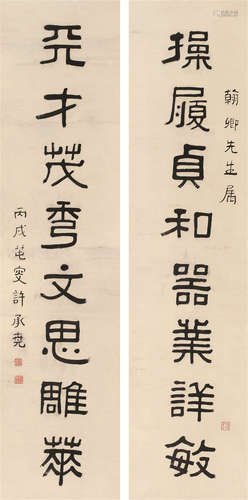 翰卿先生属
操履貞和器業詳敏
天才茂秀文思雕華
丙戌芚叟許承堯